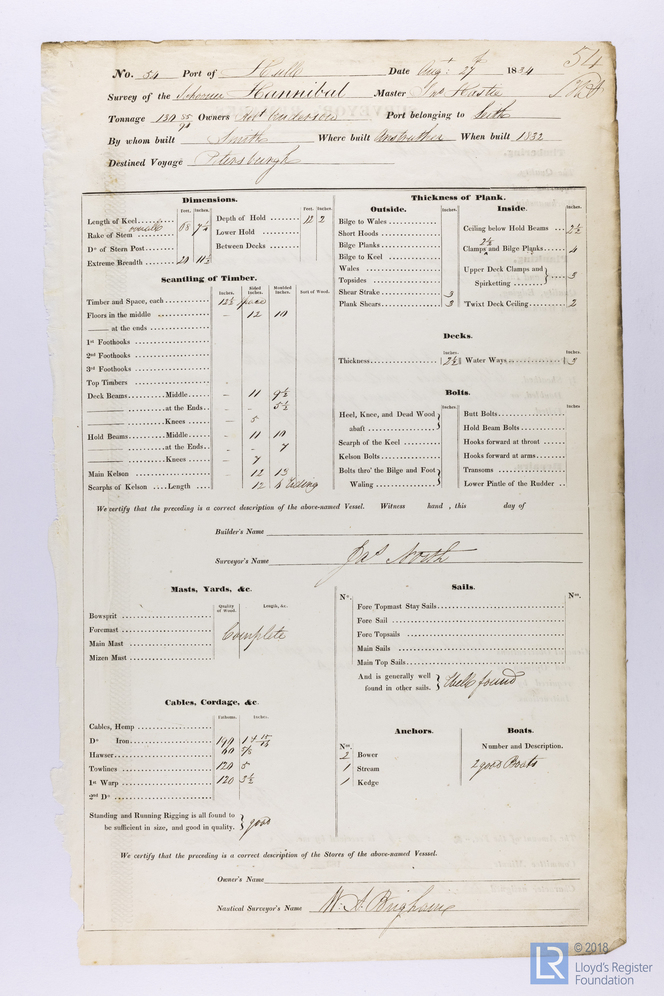 54
No. 54 Port of Hull Date Augt 27 1834
Survey of the Schooner Hannibal Master
Tonnage 130 55/94 Owners Robt Anderson Port belonging to Leith
By whom built Smith Where built Anstruther When built 1832
Destined Voyage Petersburgh
Dimensions.
Feet. Inches.
Length of Keel 68 7½
Rake of Stem small
Do of Stern Post
Extreme Breadth 20 11½
Feet. Inches.
Depth of Hold 12 2
Lower Hold
Between Decks
Scantling of Timber.
Inches. Sided Inches. Moulded Inches. Sort of Wood.
Timber and Space, each 12½ space
Floors in the middle – 12 10
—— at the ends
1st Foothooks
2nd Foothooks
3rd Foothooks
Top Timbers
Deck Beams Middle – 11 9½
—— at the Ends – – 5½
—— Knees – 5
Hold Beams Middle – 11 10
—— at the Ends – – 7
—— Knees – 7
Main Kelson 12 13
Scarphs of Kelson Length 12
Thickness of Plank.
Outside.
Inches.
Bilge to Wales
Short Hoods
Bilge Planks
Bilge to Keel
Wales
Topsides
Shear Strake 3
Plank Shears 3
Inside.
Inches.
Ceiling below Hold Beams 2½
2½
Clamps and Bilge Planks 4
Upper Deck Clamps and Spirketting 3
'Twixt Deck Ceiling 2
Decks.
Inches. Inches.
Thickness 2½ Water Ways 3
Bolts.
Inches
Heel, Knee, and Dead Wood abaft
Scarph of the Keel
Kelson Bolts
Bolts thro' the Bilge and Foot Waling
Inches
Butt Bolts
Hold Beam Bolts
Hooks forward at throat
Hooks forward at arms
Transoms
Lower Pintle of the Rudder
We certify that the preceding is a correct description of the above-named Vessel. Witness hand, this day of
Builder's Name
Surveyor's Name Jas North
Masts, Yards, &c.
Quality of Wood. Length, &c.
Bowsprit
Foremast
Main Mast
Mizen Mast
Complete
Sails.
No. Nos.
Fore Topmast Stay Sails
Fore Sail
Fore Topsails
Main Sails
Main Top Sails
And is generally well found in other sails. Well found
Cables, Cordage, &c.
Fathoms. Inches.
Cables, Hemp
Do Iron 190 1 & 15/16
Hawser 60 7½
Towlines 120 5
1st Warp 120 3½
2nd Do
Standing and Running Rigging is all found to be sufficient in size, and good in quality. good
Anchors.
Nos.
2 Bower
1 Stream
1 Kedge
Boats.
Number and Description.
2 good Boats
We certify that the preceding is a correct description of the Stores of the above-named Vesssel.
Owner's Name
Nautical Surveyor's Name W. A. Brigham
LR © 2018
Lloyd's Register
Foundation